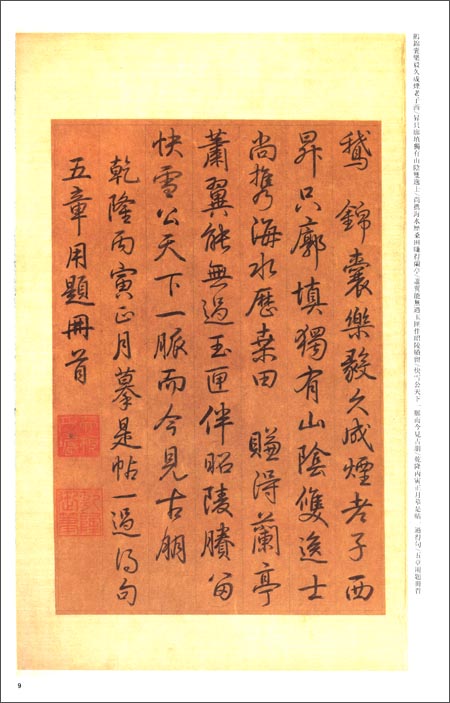 鵞 錦囊樂毅久成煙老子西
昇只廓填獨有山陰雙逸士
尚攜海水歷桑田 賺得蘭亭
蕭翼能無過玉匣伴昭陵賸留
快雪公天下一脈而今見古朋
乾隆丙寅正月摹是帖一過得句
五章用題冊首
鵝錦囊樂毅久成煙老子西 昇只廓填獨有山陰雙逸士 尚攜海水歷桑田賺得蘭亭 蕭翼能無過玉匣伴昭陵賸留 快雪公天下一脈而今見古朋 乾隆丙寅正月摹是帖一過得句 五章用題冊首
9